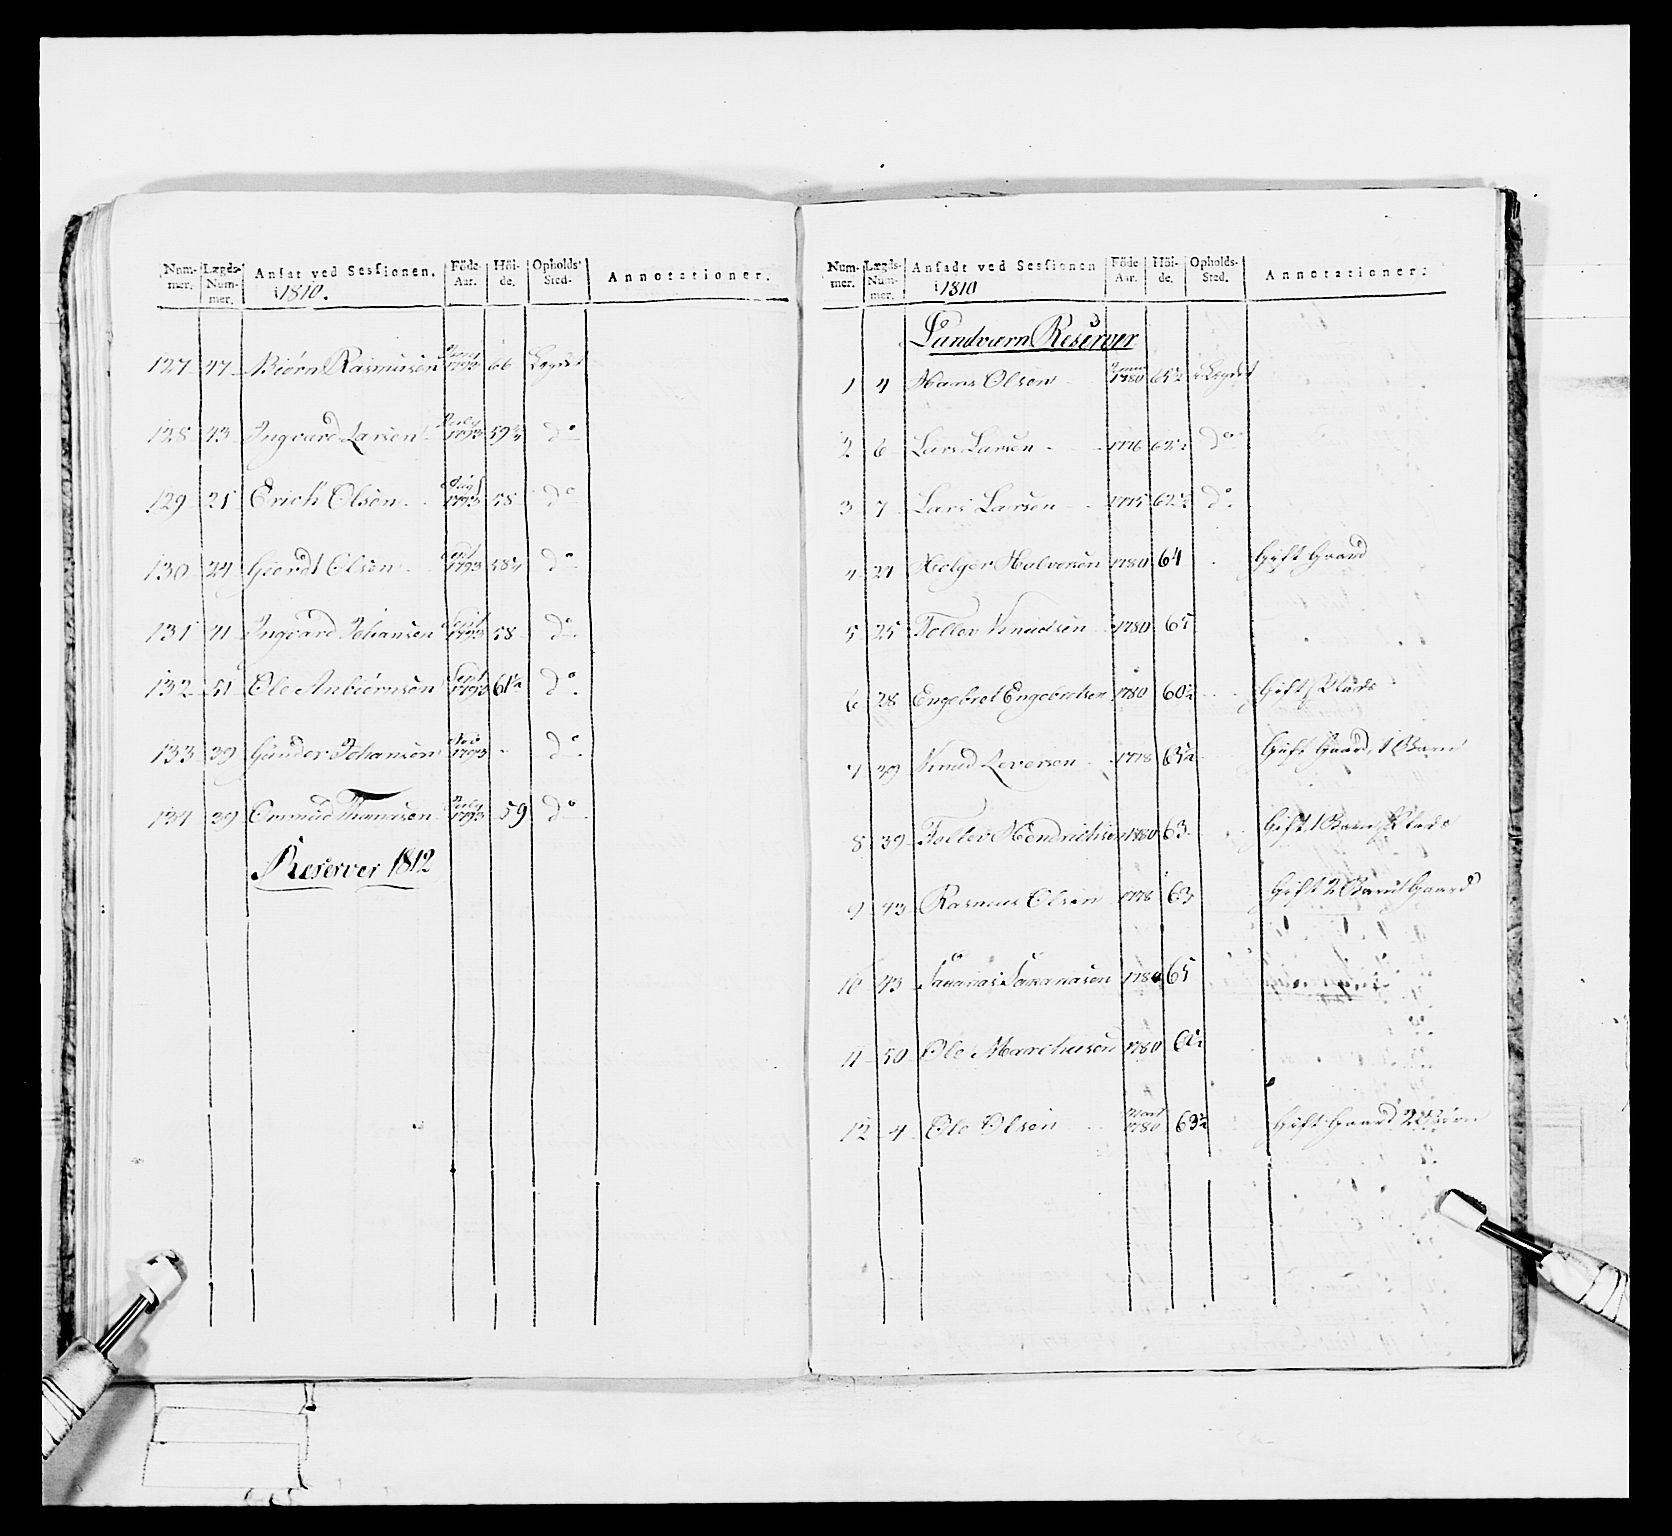 Num- mer. Lægds- Num- mer. Ansat ved Sessionen. i 1810. Föde Aar. Höi- de. Opholds- Sted. Annotationer.
127 47 Biørn Rasmusen 1793 66 Legdet
128 43 Ingvard Larsen July 1793 59 3/4 do
129 21 Erich Olsen Aug 1793 58 do
130 24 Giordt Olsen Sept 1793 58 do
131 41 Ingvard Johansen Sept 1793 58 do
132 51 Ole Anbiørnsen Sept 1793 61 1/2 do
133 39 Gunder Johansen Nov 1793 - do
134 39 Ommund Thomasen July 1793 59 do
Reserver 1812
Num- mer. Lægds- Num- mer. Ansadt ved Sessionen i 1810 Föde Aar. Höi- de. Opholds- Sted. Annotationer.
Landværn Reserver
1 4 Hans Olsen 1780 65 1/2 Legdet
2 6 Lars Larsen 1776 62 1/2 do
3 7 Lars Larsen 1775 62 1/2 do
4 21 Holger Halvorsen 1780 64 Gift Gaard
5 25 Tollev Knudsen 1780 65
6 28 Engebret Engebretsen 1780 60 1/2 Gift Plads
7 39 Knud Leversen 1778 Gift Gaard, 1 Barn
8 39 Tollev Hendrichsen 1780 63 Gift 1 Barn Plads
9 43 Rasmus Olsen 1778 63 Gift 2 Barn Gaard
10 43 1780 65
11 50 Ole Marchusen 1780
12 4 Ole Olsen Mart 1780 63 1/2 Gift Gaard 2 Børn